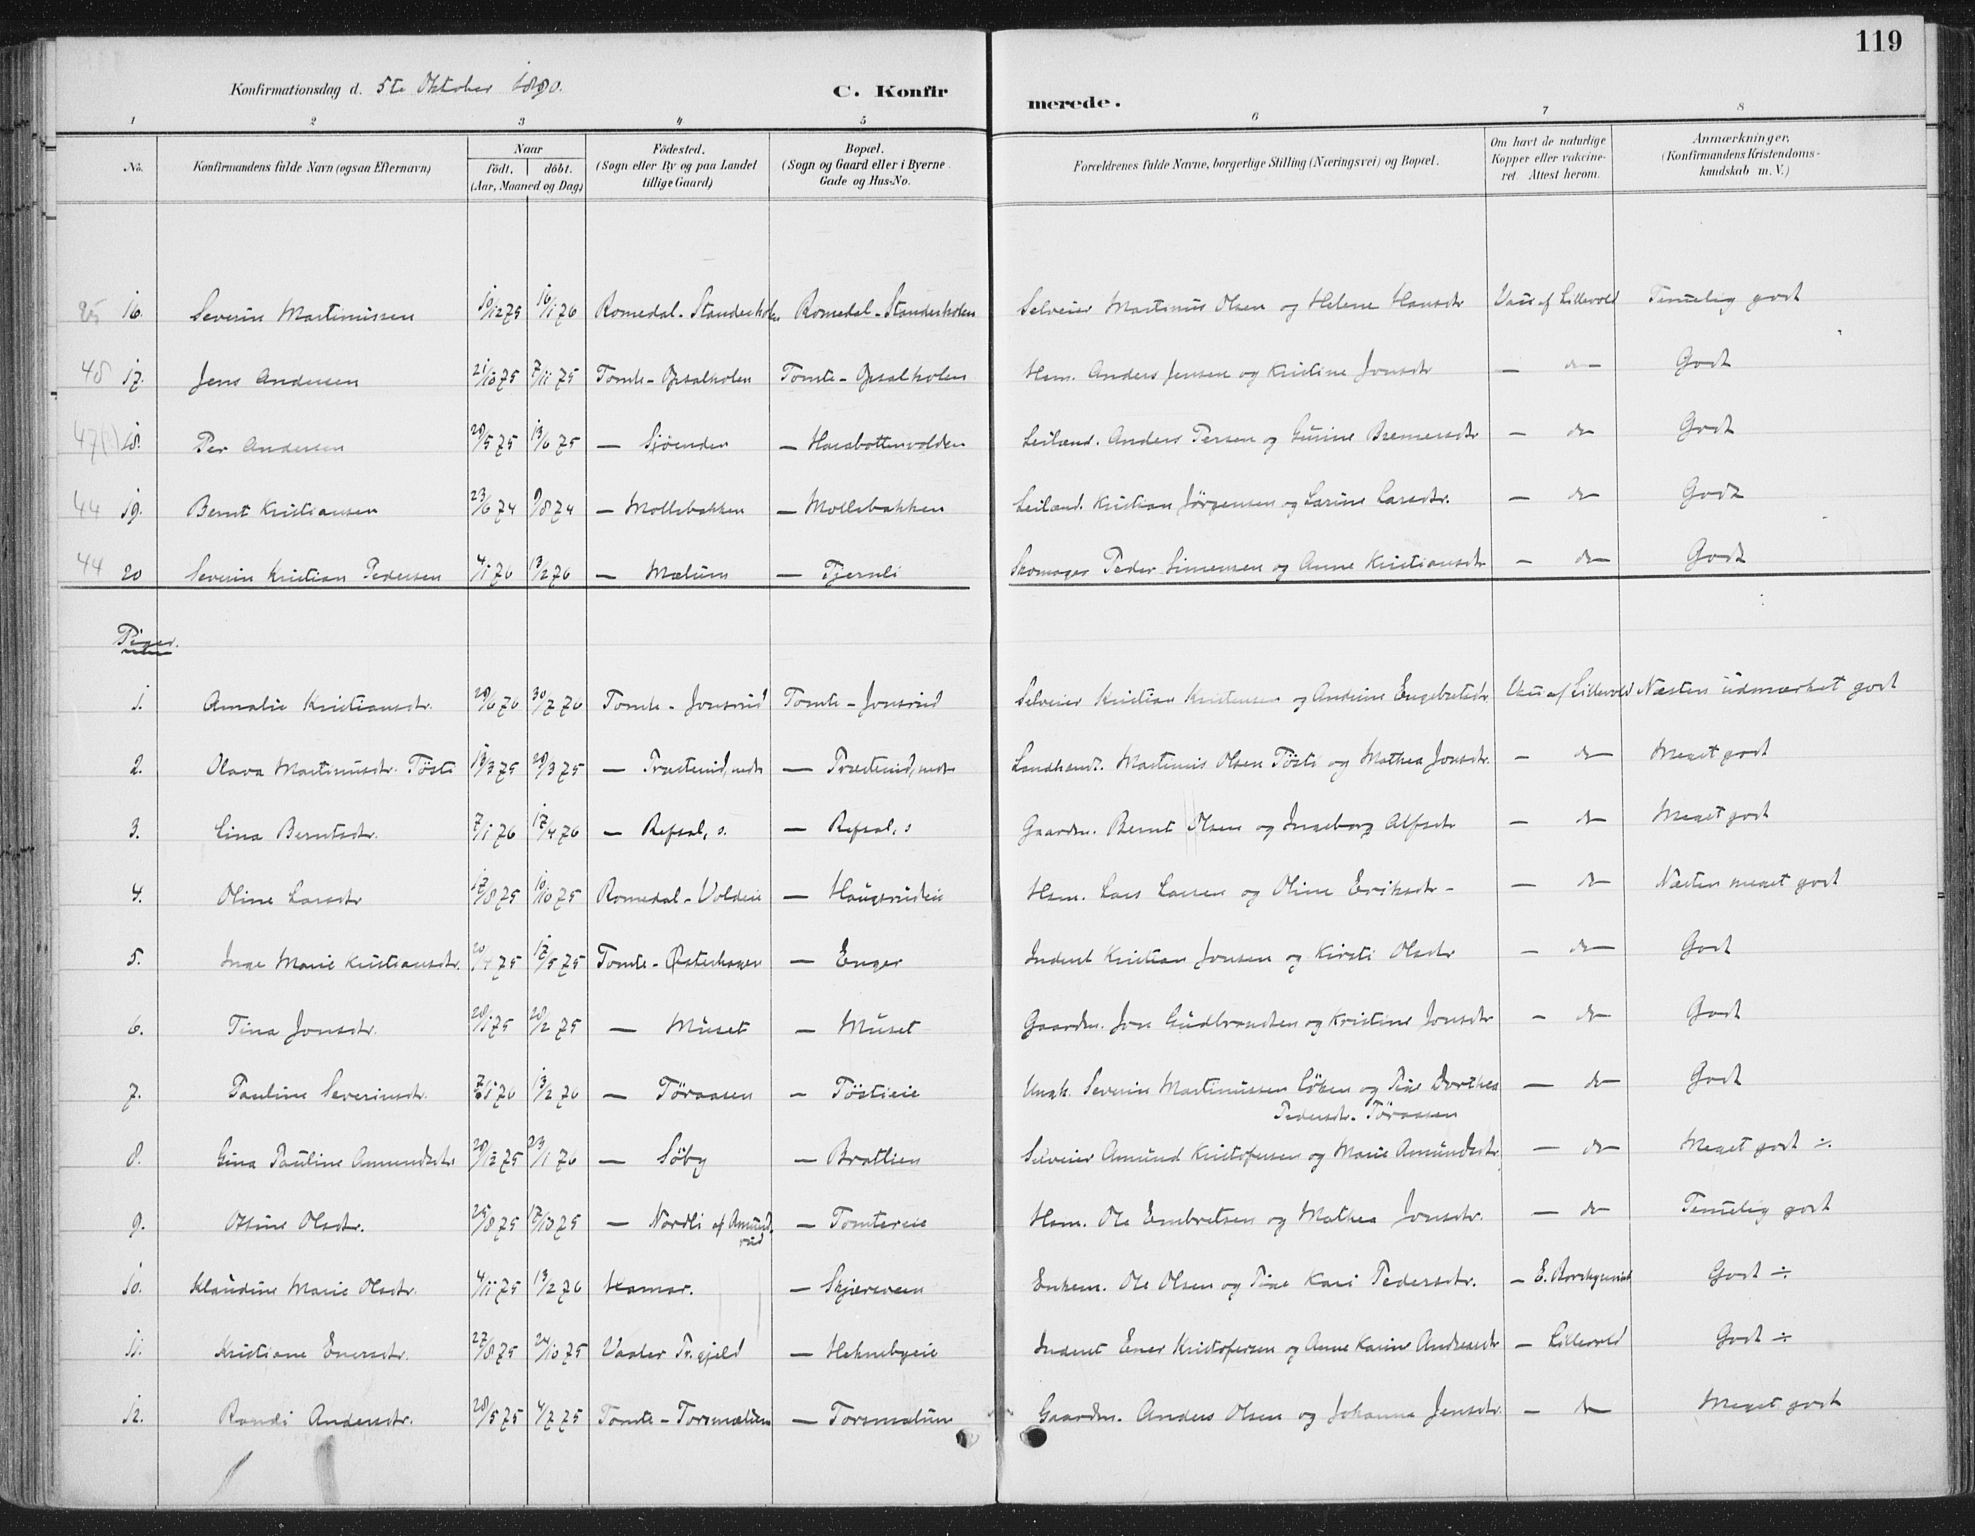 119
Konfirmationsdag d. 5te Oktober 1890.
C. Konfirmerede.
1 2 3 4 5 6 7 8
No. Konfirmandens fulde Navn (ogsaa Efternavn) Naar født. døbt. (Aar, Maaned og Dag) Fødested. (Sogn eller By og paa Landet tillige Gaard) Bopæl. (Sogn og Gaard eller i Byerne Gade og Hus-No. Forældrenes fulde Navne, borgerlige Stilling (Næringsvei) og Bopæl. Om havt de naturlige Kopper eller vakcineret. Attest herom. Anmærkninger, (Konfirmandens Kristendomskundskab m. V.)
16. Severin Martinussen 10/12 75 16/1 76 Romedal - Standerholen Romedal - Standerholen Selveier Martinus Olsen og Helene Hansdtr Vacc af Lillevold Temmelig godt
48 17. Jens Andersen 21/10 75 7/11 75 Tomte - Opsalholen Tomte - Opsalholen Hsm. Anders Jensen og Kristine Jonsdtr — do — Godt
18. Per Andersen 29/5 75 13/6 75 — Sjøenden — Harabottenvolden Leilænd. Anders Persen og Gurine Bremersdtr — do Godt
44 19. Bernt Kristiansen 23/6 74 9/8 74 — Mollebakken — Mollebakken Leilænd. Kristian Jørgensen og Karine Larsdtr. — do Godt
44 20 Severin Kristian Pedersen 4/1 76 13/2 76 — Mælum — Tjernli Skomager Peder Simensen og Anne Kristiansdtr — do Godt
Piger.
1. Amalie Kristiansdtr. 29/6 76 30/7 76 Tomte - Jonsrud Tomte - Jonsrud Selveier Kristian Kristensen og Andrine Engebretsdtr Vacc af Lillevold Næsten udmærket godt
2. Olava Martinusdtr. Tøsti 13/3 75 29/3 75 — Præsterud, nedr — Præsterud, nedr Landhandl. Martinus Olsen Tøsti og Mathea Jonsdtr. — do — Meget godt
3. Lina Berntsdtr. 7/1 76 17/4 76 — Refsal, s. — Refsal, s Gaardm. Bernt Olsen og Ingeborg Alfsdtr — do Meget godt
4. Oline Larsdtr 17/8 75 10/10 75 Romedal - Voldeie — Haugsrudeie Hsm. Lars Larsen og Oline Eriksdtr - — do Næsten meget godt
5. Inge Marie Kristiansdtr. 20/4 75 17/5 75 Tomte - Østerhagen — Enger Inderst Kristian Jonsen og Kirsti Olsdtr — do — Godt
6. Tina Jonsdtr. 28/1 75 28/2 75 — Muset — Muset Gaardm. Jon Gudbrandsen og Kristine Jonsdtr - do Godt
7. Pauline Severinsdtr. 7/1 76 13/2 76 — Töraasen — Töstieie Ungk. Severin Martinussen Löken og Pige Dorthea Pedersdtr. Töraasen — do Godt
8. Gina Pauline Amundsdtr 28/12 75 23/1 76 — Söby — Brattlien Selveier Amund Kristofersen og Marie Amundsdtr. — do Meget godt ÷
9. Otsine Olsdtr. 25/8 75 17/10 75 — Nordli af Amundrud — Tomtereie Hsm. Ole Embretsen og Mathea Jonsdtr. — do Temmelig godt
10. Klaudine Marie Olsdtr. 4/11 75 13/2 76 Hamar. — Skjæreveen Enkem. Ole Olsen og Pige Kari Pedersdtr. — Godt ÷
11. Kristiane Enersdtr. 27/8 75 24/10 75 Vaaler Pr.gjeld — Hehnebyeie Inderst Ener Kristofersen og Anne Karine Andreasdtr — Lillevold Godt ÷
12. Randi Andersdtr. 28/5 75 4/7 75 Tomte - Torsmælum — Torsmælum Gaardm. Anders Olsen og Johanne Jensdtr. — do Meget godt